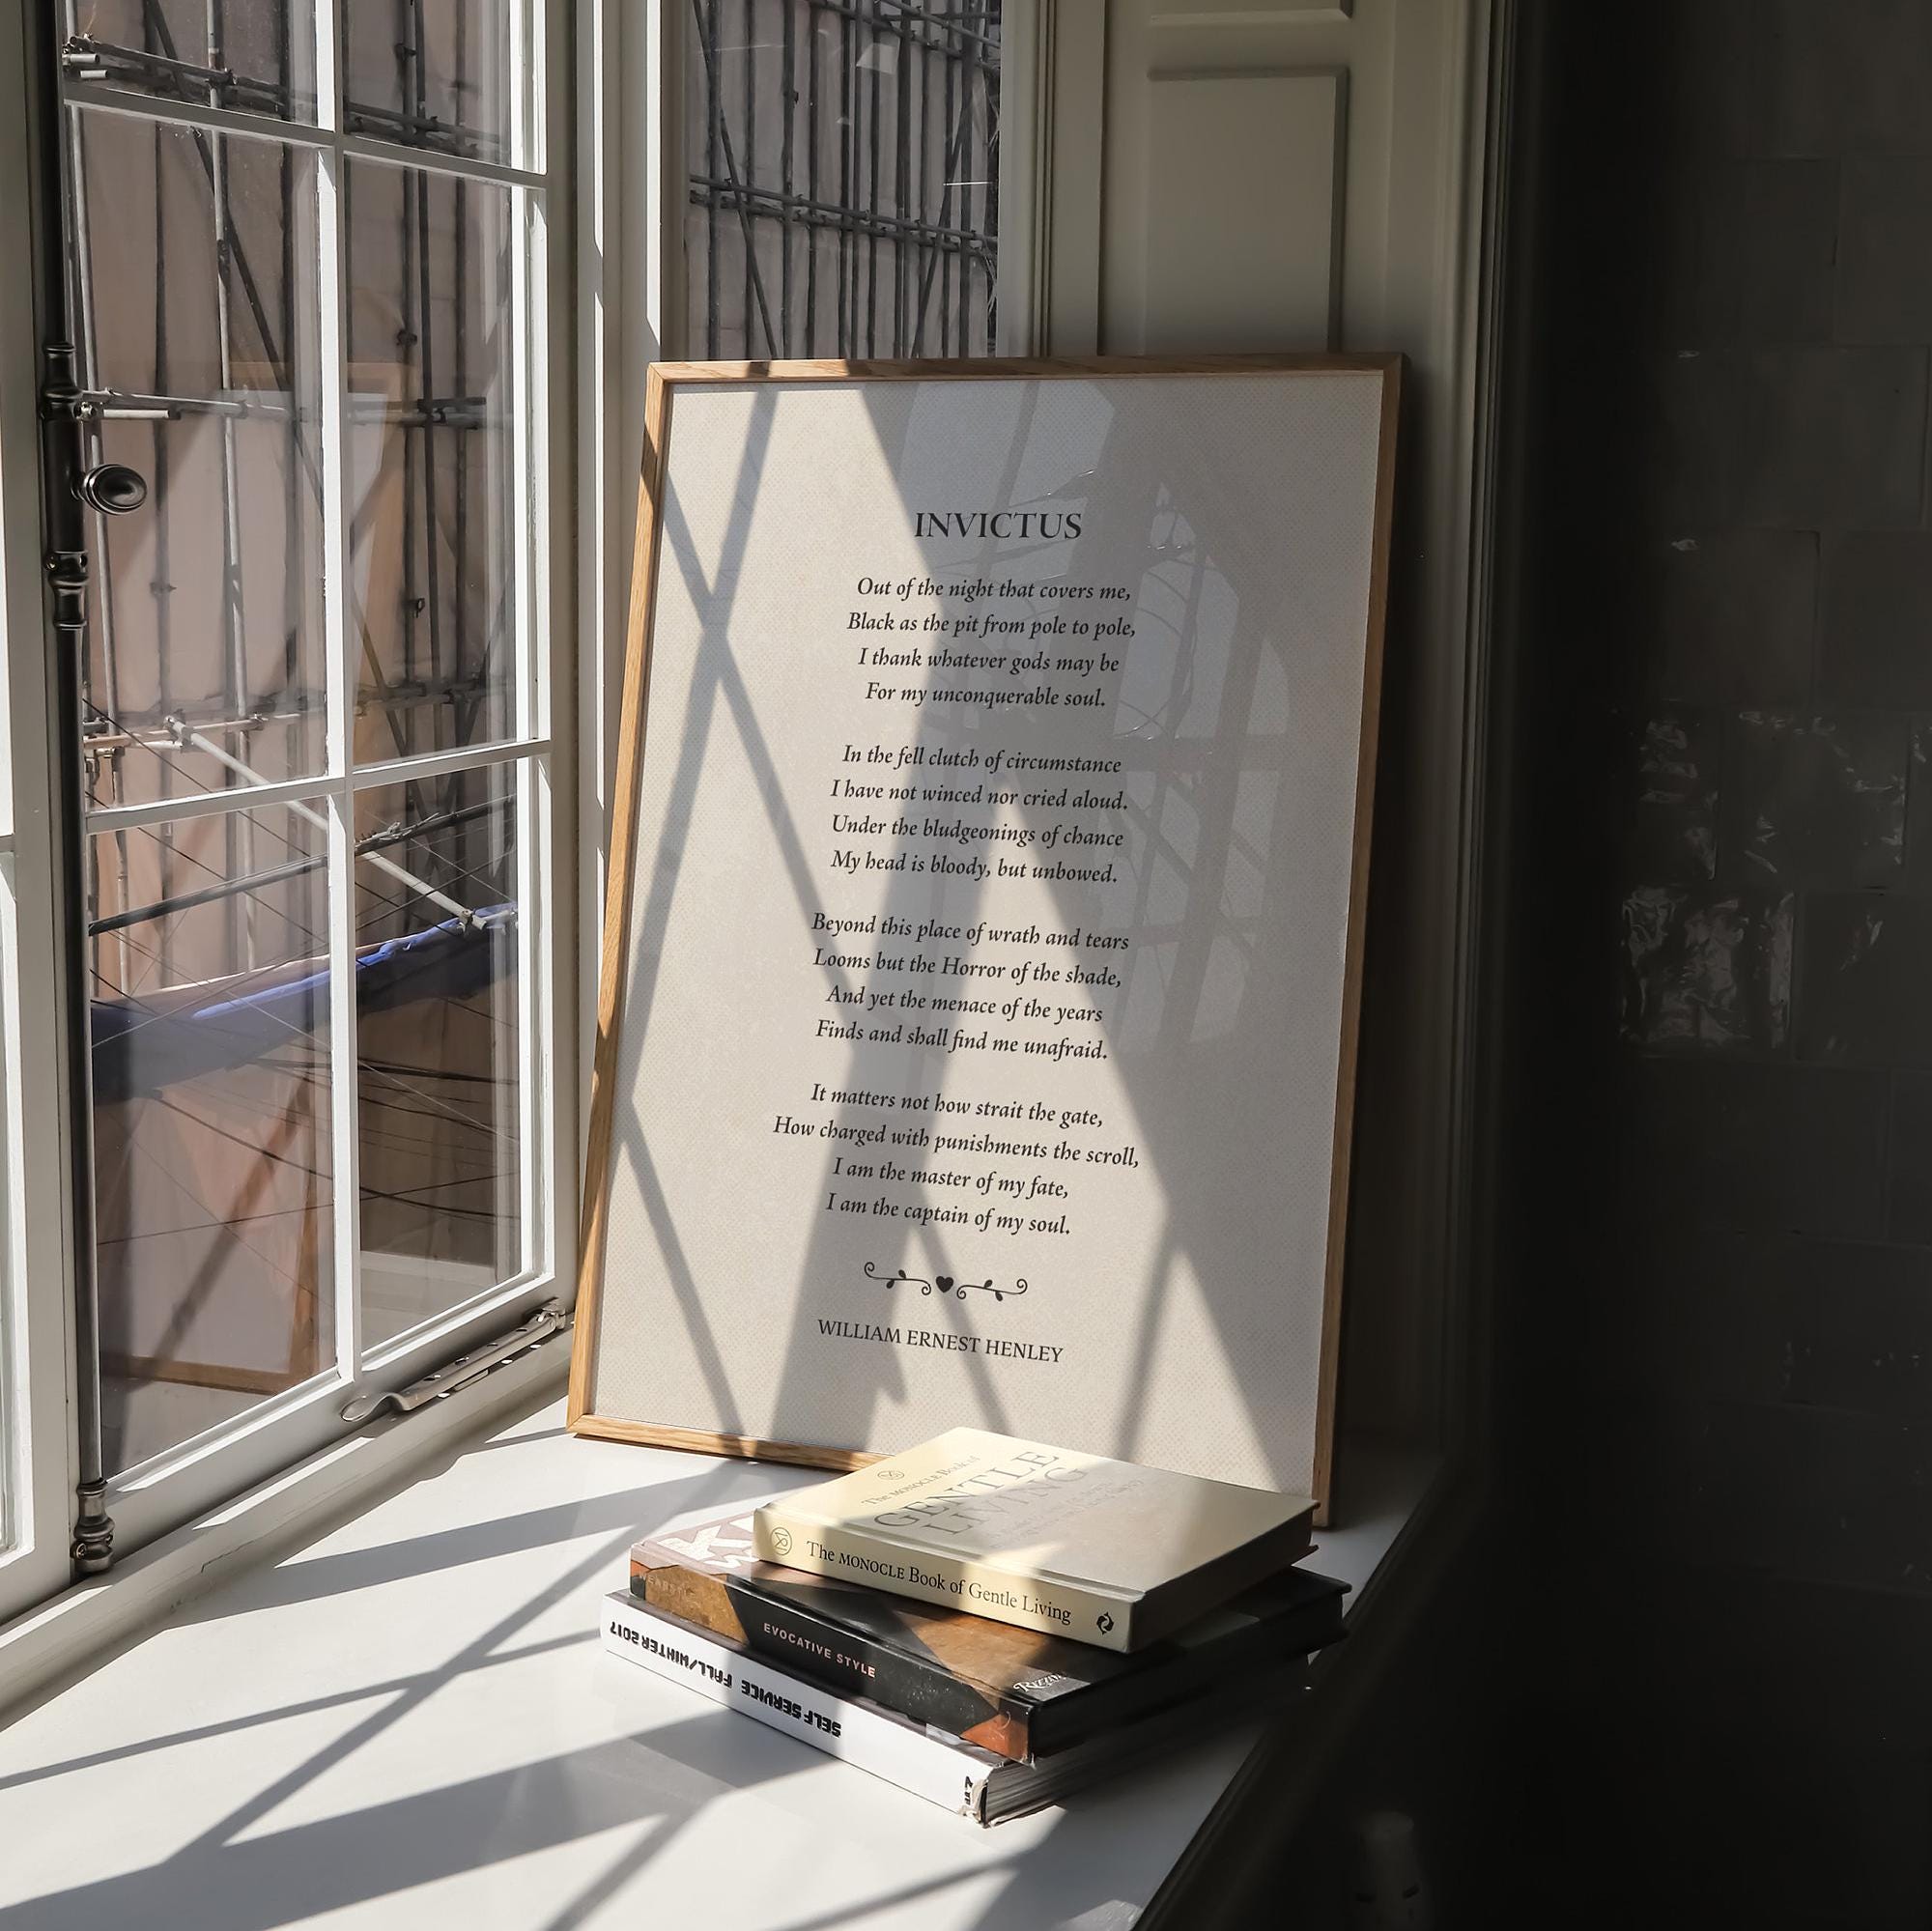 INVICTUS
Out of the night that covers me,
Black as the pit from pole to pole,
I thank whatever gods may be
For my unconquerable soul.
In the fell clutch of circumstance
I have not winced nor cried aloud.
Under the bludgeonings of chance
My head is bloody, but unbowed.
Beyond this place of wrath and tears
Looms but the Horror of the shade,
And yet the menace of the years
Finds and shall find me unafraid.
It matters not how strait the gate,
How charged with punishments the scroll,
I am the master of my fate,
I am the captain of my soul.
WILLIAM ERNEST HENLEY
The MONOCLE Book of
GENTLE
LIVING
The MONOCLE Book of Gentle Living
EVOCATIVE STYLE
SELF SERVICE FALL/WINTER 2017